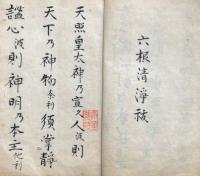 六根清淨祓
天照皇太神乃宣久人波則
天下乃神物奈利須掌靜
謐心波則神明乃本主他利